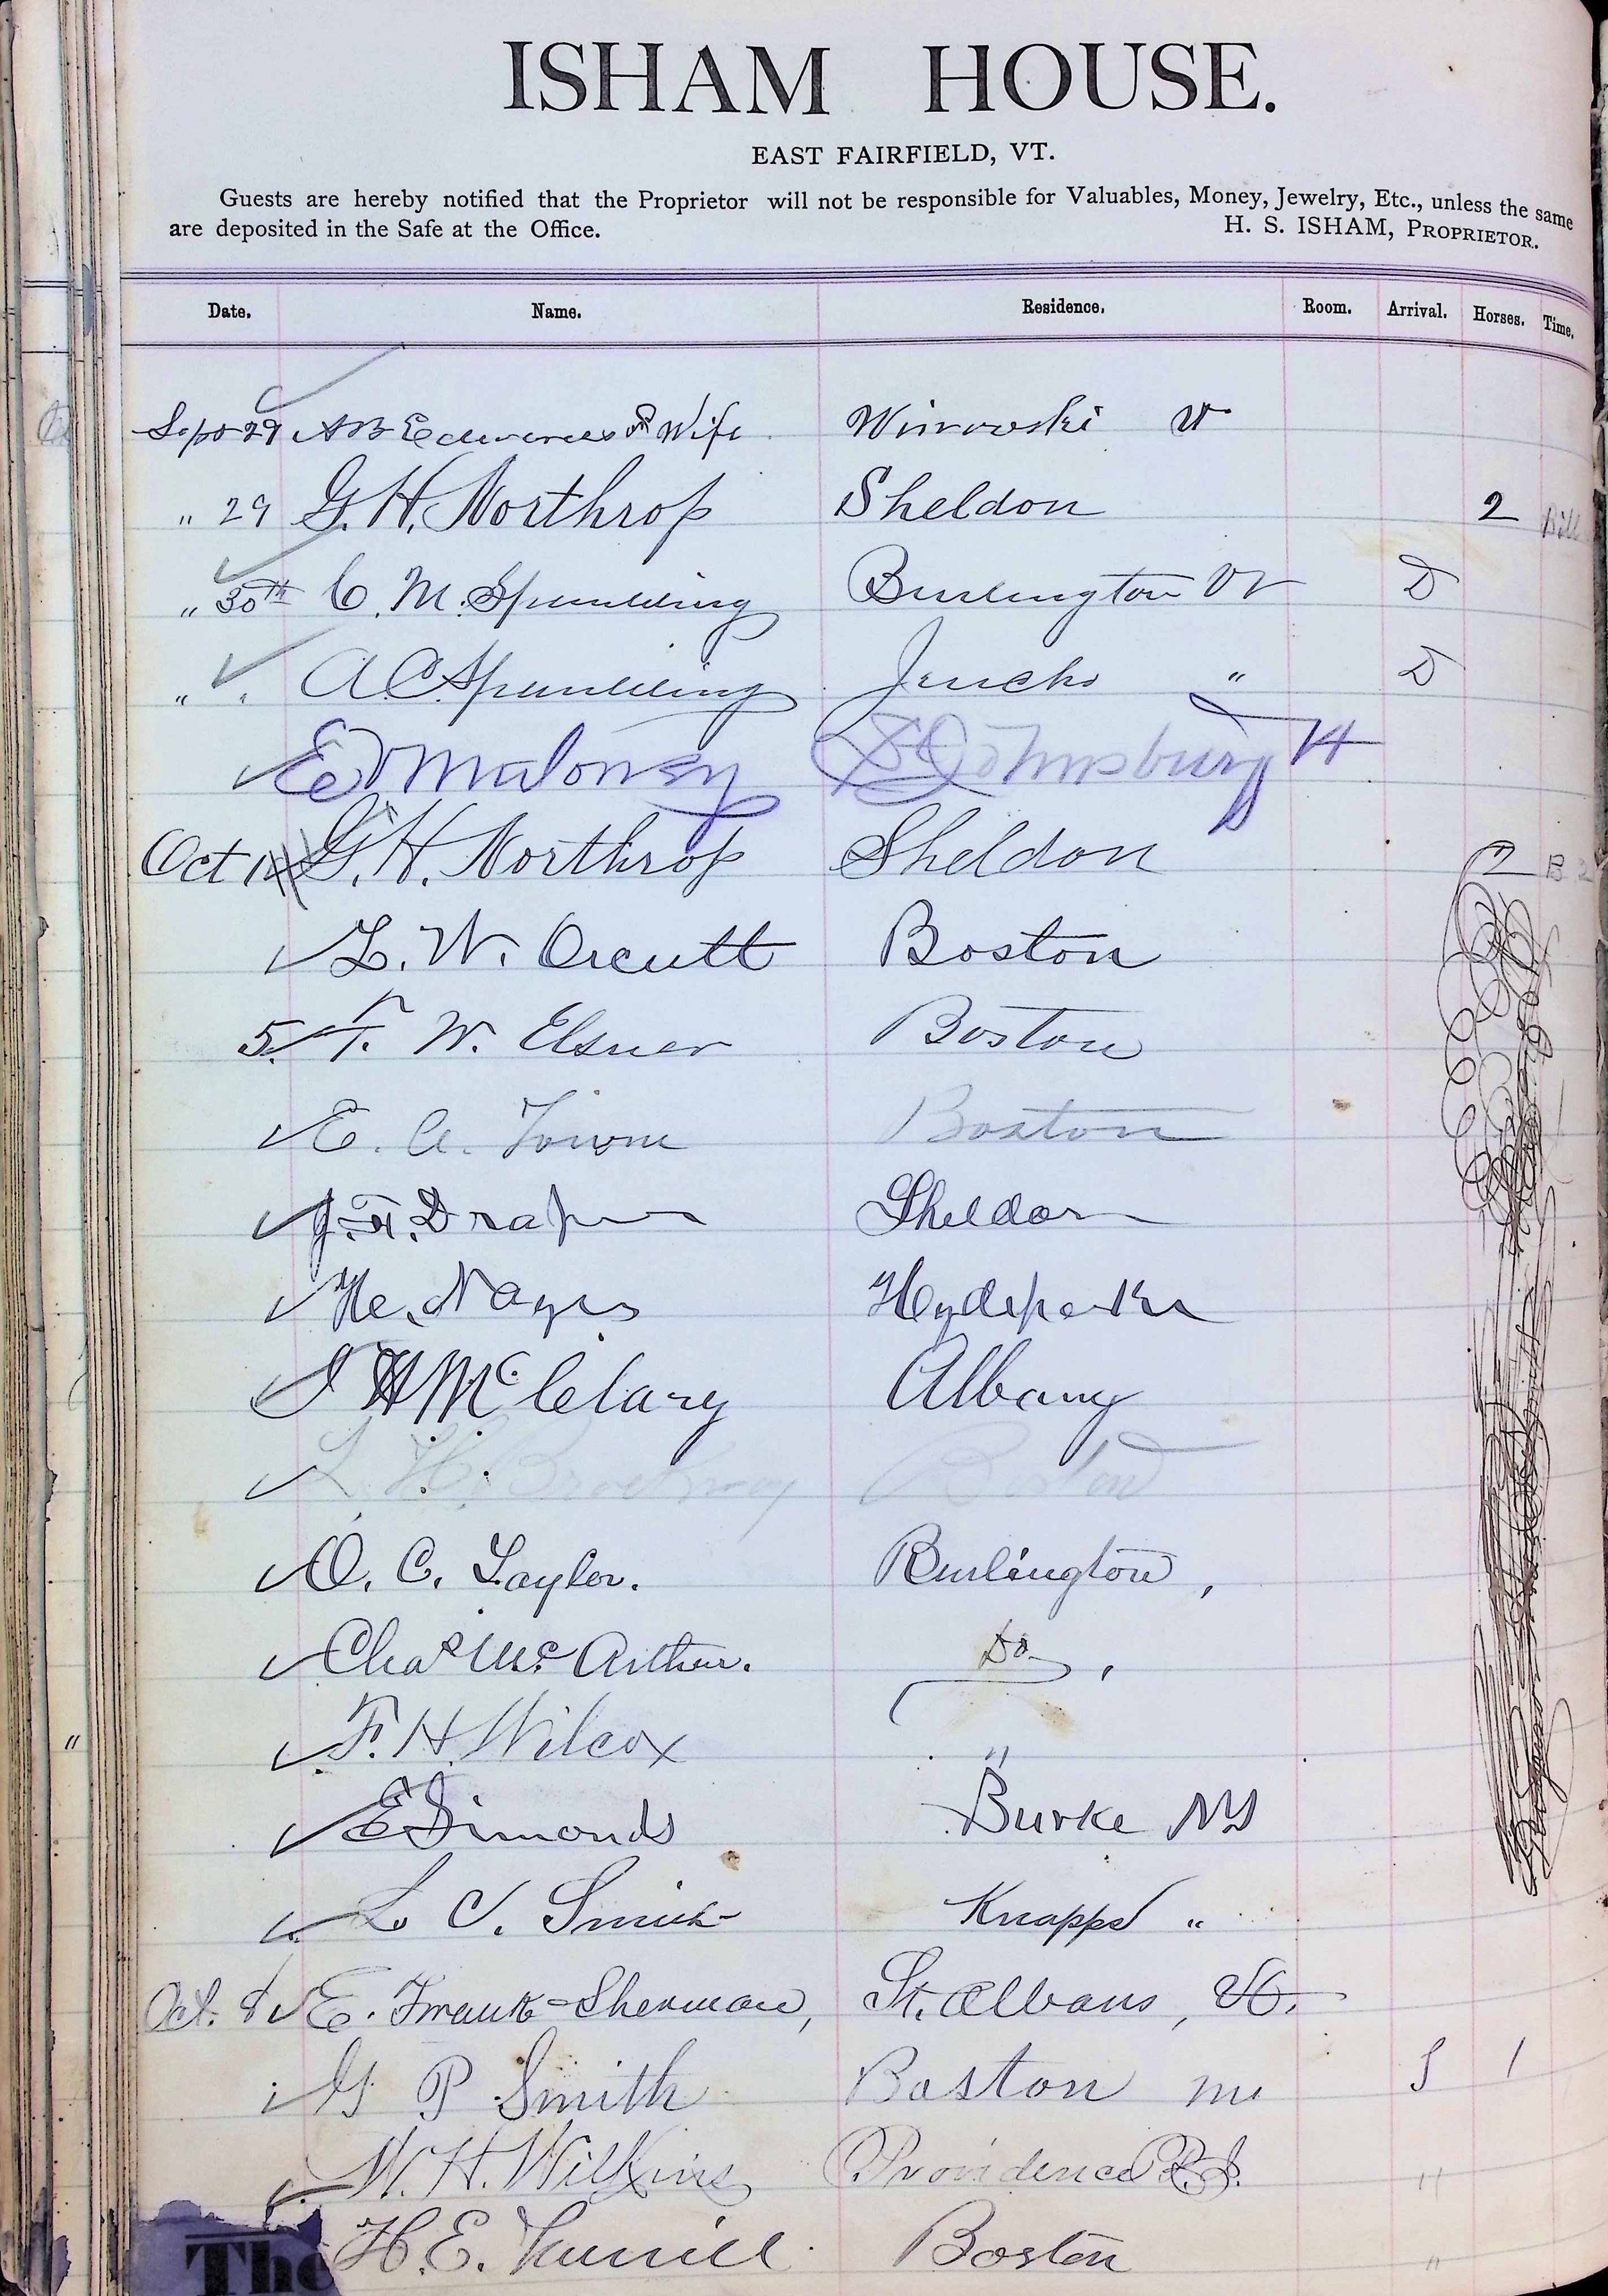 ISHAM HOUSE.
EAST FAIRFIELD, VT.
Guests are hereby notified that the Proprietor will not be responsible for Valuables, Money, Jewelry, Etc., unless the same
are deposited in the Safe at the Office. H. S. ISHAM, PROPRIETOR.
Date. Name. Residence. Room. Arrival. Horses. Time.
Sept 29 A B Edwards & Wife Winooski Vt
" 29 G. H. Northrop Sheldon 2 Bill
" 30th C. M. Spaulding Burlington Vt D
" " A C Spaulding Jericho " D
Ed Maloney St Johnsbury Vt
Oct 1 G. H. Northrop Sheldon 2 B 2
L. W. Orcutt Boston
5. F. W. Elsner Boston
E. A. Towne Boston
J. F. Draper Sheldon
Noyes Hydepark
J H McClary Albany
L H. Brockway Boston
O. C. Taylor. Burlington,
Chas McArthur. Do,
F. H. Wilcox "
E Simonds Burke NY
L. Smith Knapps "
Oct. 8 E. Frank-Sherman, St. Albans, Vt.
G P Smith Boston 1
W. H. Wilkins Providence R.I. "
The H. E. Boston "